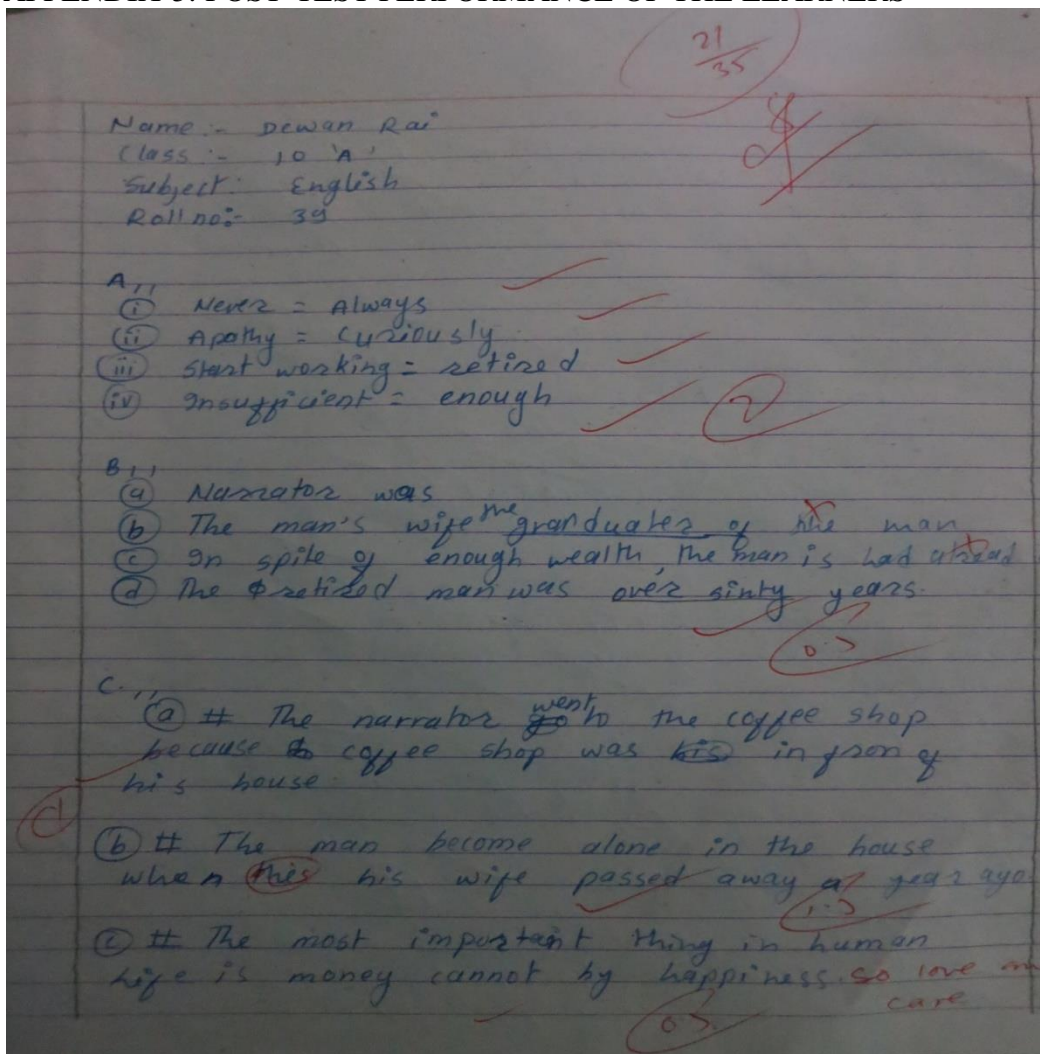 APPENDIX 5: POST-TEST PERFORMANCE OF THE LEARNERS
21/35
Name :- Dewan Rai
Class :- 10 'A'
Subject: English
Roll no:- 39
A,,
(i) Never = Always
(ii) Apathy = Curiously
(iii) Start working = retired
(iv) Insufficient = enough
2
B,,
(a) Narrator was
(b) The man's wife the granduater of the man
(c) In spite of enough wealth, the man is had
(d) The retired man was over sinty years.
0.5
C.,,
(a) # The narrator went to the coffee shop
because coffee shop was his in fron of
his house
1
(b) # The man become alone in the house
when this his wife passed away a year ago
1.5
(c) # The most important thing in human
life is money cannot by happiness. so love an
care
0.5